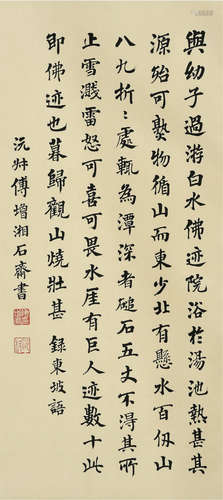 與幼子過游白水佛迹院浴於湯池熱甚其
源殆可熟物循山而東少北有懸水百仞山
八九折〻處輒為潭深者縋石五丈不得其所
止雪濺雷怒可喜可畏水厓有巨人迹數十此
即佛迹也暮歸觀山燒壯甚 錄東坡語
沅叔傅增湘石齋書